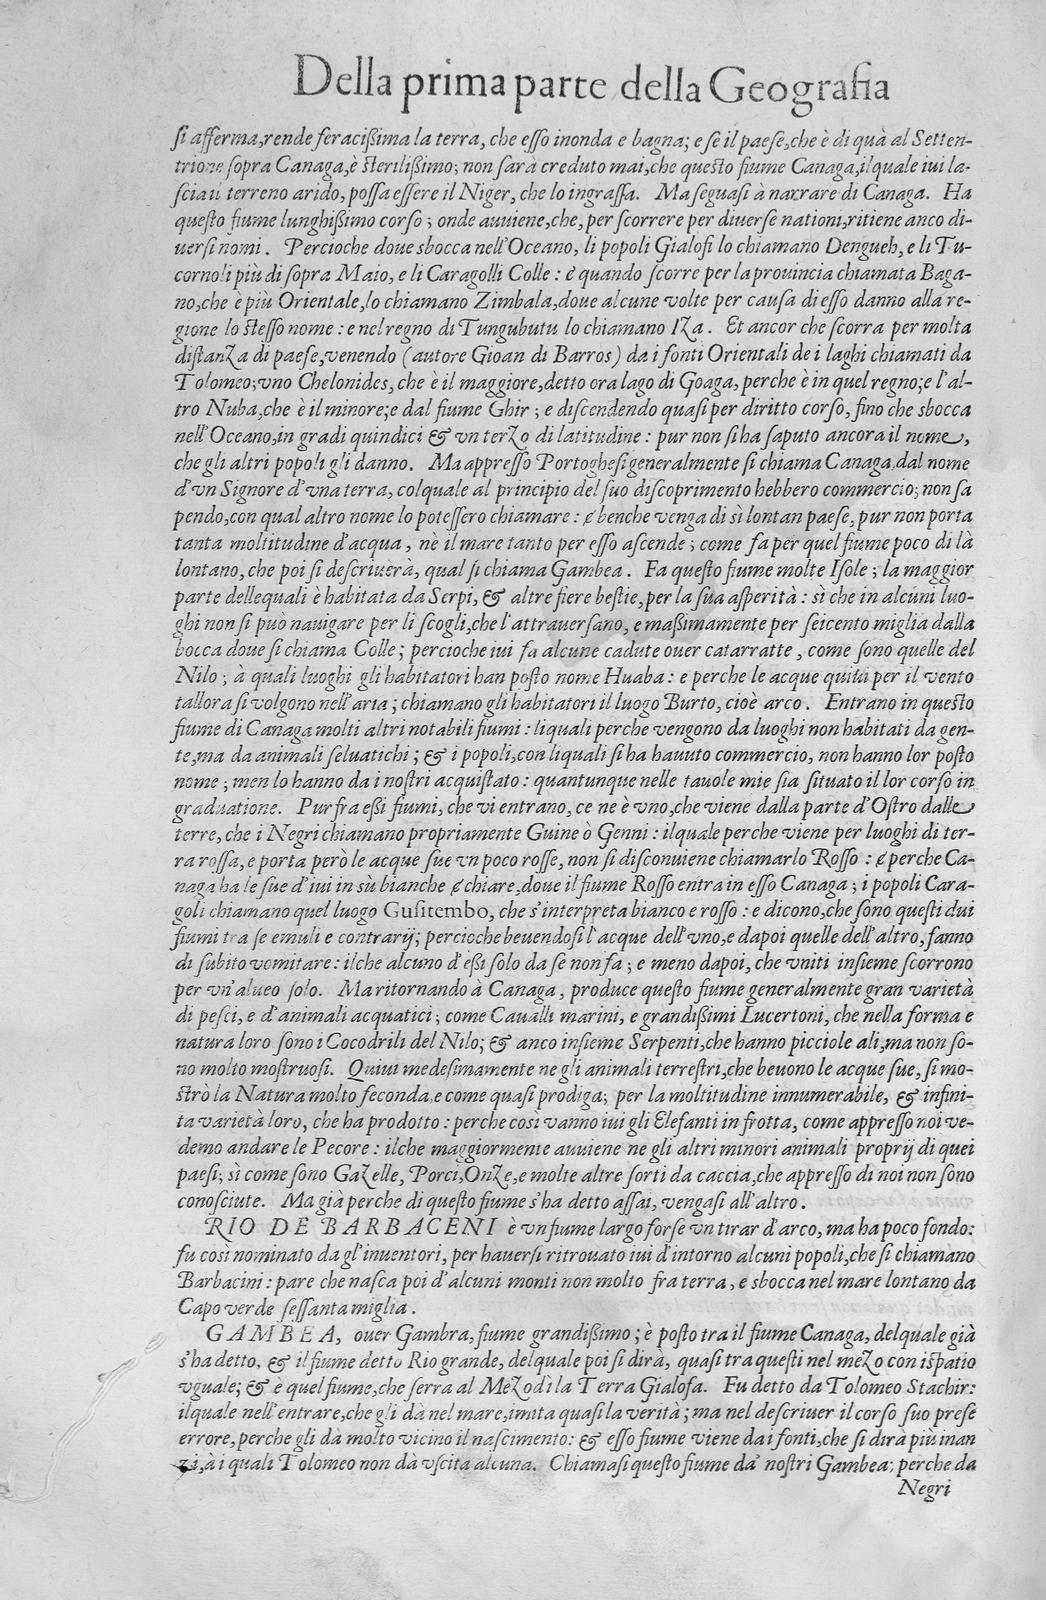 Della prima parte della Geografia
si afferma, rende feracißima la terra, che esso inonda e bagna; e se il paese, che è di quà al Setten-
trione sopra Canaga, è sterilißimo; non sarà creduto mai, che questo fiume Canaga, il quale iui la-
scia il terreno arido, possa essere il Niger, che lo ingrassa. Ma seguasi à narrare di Canaga. Ha
questo fiume lunghißimo corso; onde auuiene, che, per scorrere per diuerse nationi, ritiene anco di-
uersi nomi. Percioche doue sbocca nell'Oceano, li popoli Gialofi lo chiamano Dengueh, e li Tu-
cornoli più di sopra Maio, e li Caragolli Colle: è quando scorre per la prouincia chiamata Baga-
no, che è più Orientale, lo chiamano Zimbala, doue alcune volte per causa di esso danno alla re-
gione lo stesso nome: e nel regno di Tungubutu lo chiamano Iza. Et ancor che scorra per molta
distanza di paese, venendo (autore Gioan di Barros) da i fonti Orientali de i laghi chiamati da
Tolomeo; vno Chelonides, che è il maggiore, detto ora lago di Goaga, perche è in quel regno; e l'al-
tro Nuba, che è il minore; e dal fiume Ghir; e discendendo quasi per diritto corso, fino che sbocca
nell'Oceano, in gradi quindici & vn terzo di latitudine: pur non si ha saputo ancora il nome,
che gli altri popoli gli danno. Ma appresso Portoghesi generalmente si chiama Canaga, dal nome
d'vn Signore d'vna terra, col quale al principio del suo discoprimento hebbero commercio; non sa
pendo, con qual altro nome lo potessero chiamare: & benche venga di sì lontan paese, pur non porta
tanta moltitudine d'acqua, nè il mare tanto per esso ascende; come fa per quel fiume poco di là
lontano, che poi si descriuerà, qual si chiama Gambea. Fa questo fiume molte Isole; la maggior
parte dellequali è habitata da Serpi, & altre fiere bestie, per la sua asperità: sì che in alcuni luo-
ghi non si può nauigare per li scogli, che l'attrauersano, e maßimamente per seicento miglia dalla
bocca doue si chiama Colle; percioche iui fa alcune cadute ouer catarratte, come sono quelle del
Nilo; à quali luoghi gli habitatori han posto nome Huaba: e perche le acque quiui per il vento
tallora si volgono nell'aria; chiamano gli habitatori il luogo Burto, cioè arco. Entrano in questo
fiume di Canaga molti altri notabili fiumi: li quali perche vengono da luoghi non habitati da gen-
te, ma da animali seluatichi; & i popoli, con li quali si ha hauuto commercio, non hanno lor posto
nome; men lo hanno da i nostri acquistato: quantunque nelle tauole mie sia situato il lor corso in
graduatione. Pur fra eßi fiumi, che vi entrano, ce ne è vno, che viene dalla parte d'Ostro dalle
terre, che i Negri chiamano propriamente Guine ò Genni: il quale perche viene per luoghi di ter-
ra rossa, e porta però le acque sue vn poco rosse, non si disconuiene chiamarlo Rosso: & perche Ca-
naga ha le sue d'iui in sù bianche & chiare, doue il fiume Rosso entra in esso Canaga; i popoli Cara-
goli chiamano quel luogo Gusitembo, che s'interpreta bianco e rosso: e dicono, che sono questi dui
fiumi tra se emuli e contrarij; percioche beuendosi l'acque dell'vno, e dapoi quelle dell'altro, fanno
di subito vomitare: ilche alcuno d'eßi solo da se non fa; e meno dapoi, che vniti insieme scorrono
per vn'alueo solo. Ma ritornando à Canaga, produce questo fiume generalmente gran varietà
di pesci, e d'animali acquatici; come Caualli marini, e grandißimi Lucertoni, che nella forma e
natura loro sono i Cocodrili del Nilo; & anco insieme Serpenti, che hanno picciole ali, ma non so-
no molto mostruosi. Quiui medesimamente ne gli animali terrestri, che beuono le acque sue, si mo-
strò la Natura molto feconda, e come quasi prodiga; per la moltitudine innumerabile, & infini-
ta varietà loro, che ha prodotto: perche così vanno iui gli Elefanti in frotta, come appresso noi ve-
demo andare le Pecore: ilche maggiormente auuiene ne gli altri minori animali proprij di quei
paesi; sì come sono Gazelle, Porci, Onze, e molte altre sorti da caccia, che appresso di noi non sono
conosciute. Ma già perche di questo fiume s'ha detto assai, vengasi all'altro.
RIO DE BARBACENI è vn fiume largo forse vn tirar d'arco, ma ha poco fondo:
fu così nominato da gl'inuentori, per hauersi ritrouato iui d'intorno alcuni popoli, che si chiamano
Barbacini: pare che nasca poi d'alcuni monti non molto fra terra, e sbocca nel mare lontano da
Capo verde sessanta miglia.
GAMBEA, ouer Gambra, fiume grandißimo; è posto tra il fiume Canaga, del quale già
s'ha detto, & il fiume detto Rio grande, del quale poi si dirà, quasi tra questi nel mezo con ispatio
vguale; & è quel fiume, che serra al Mezodì la Terra Gialofa. Fu detto da Tolomeo Stachir:
ilquale nell'entrare, che gli dà nel mare, imita quasi la verità; ma nel descriuer il corso suo prese
errore, perche gli dà molto vicino il nascimento: & esso fiume viene da i fonti, che si dirà più inan
zi, à i quali Tolomeo non dà vscita alcuna. Chiamasi questo fiume da' nostri Gambea; perche da
Negri